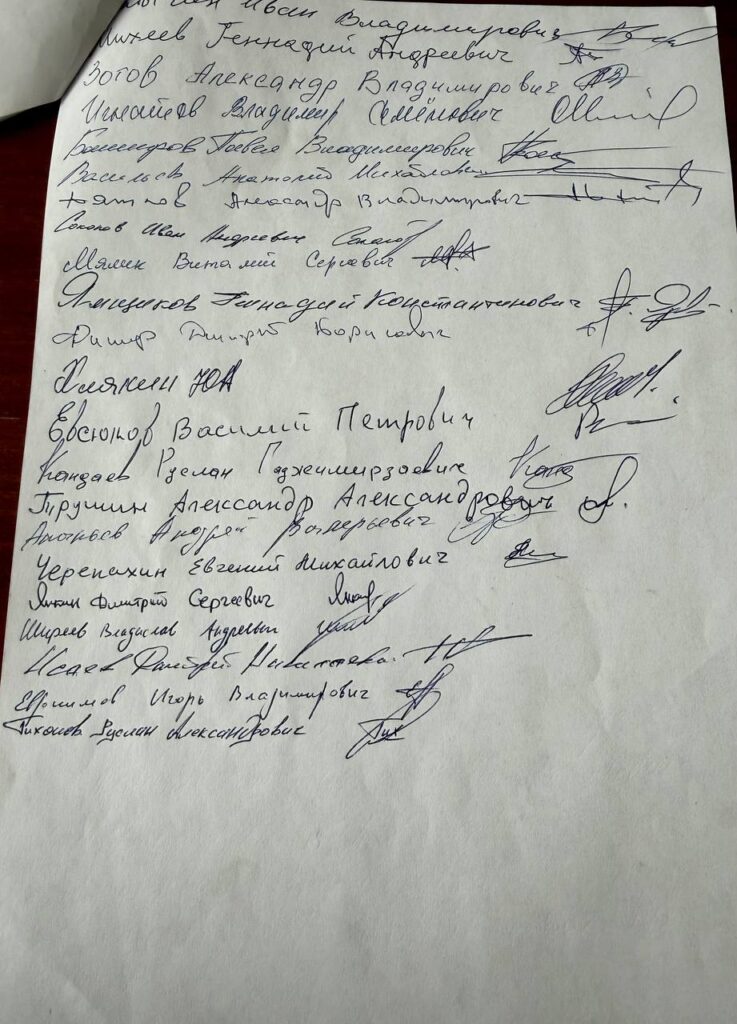 Иван Владимирович
Михеев Геннадий Андреевич
Зотов Александр Владимирович
Игнатьев Владимир Семёнович
Башкиров Павел Владимирович
Васильев Анатолий Михайлович
Александр Владимирович
Соколов Иван Андреевич
Мялик Виталий Сергеевич
Ямщиков Геннадий Константинович
Дмитрий Борисович
Хлякин ЮА
Евсюков Василий Петрович
Кандаев Руслан Гаджимирзаевич
Трушин Александр Александрович
Ананьев Андрей Валерьевич
Черепахин Евгений Михайлович
Янкин Дмитрий Сергеевич
Ширеев Владислав Андреевич
Исаев Дмитрий
Евдокимов Игорь Владимирович
Тихонов Руслан Александрович Тих